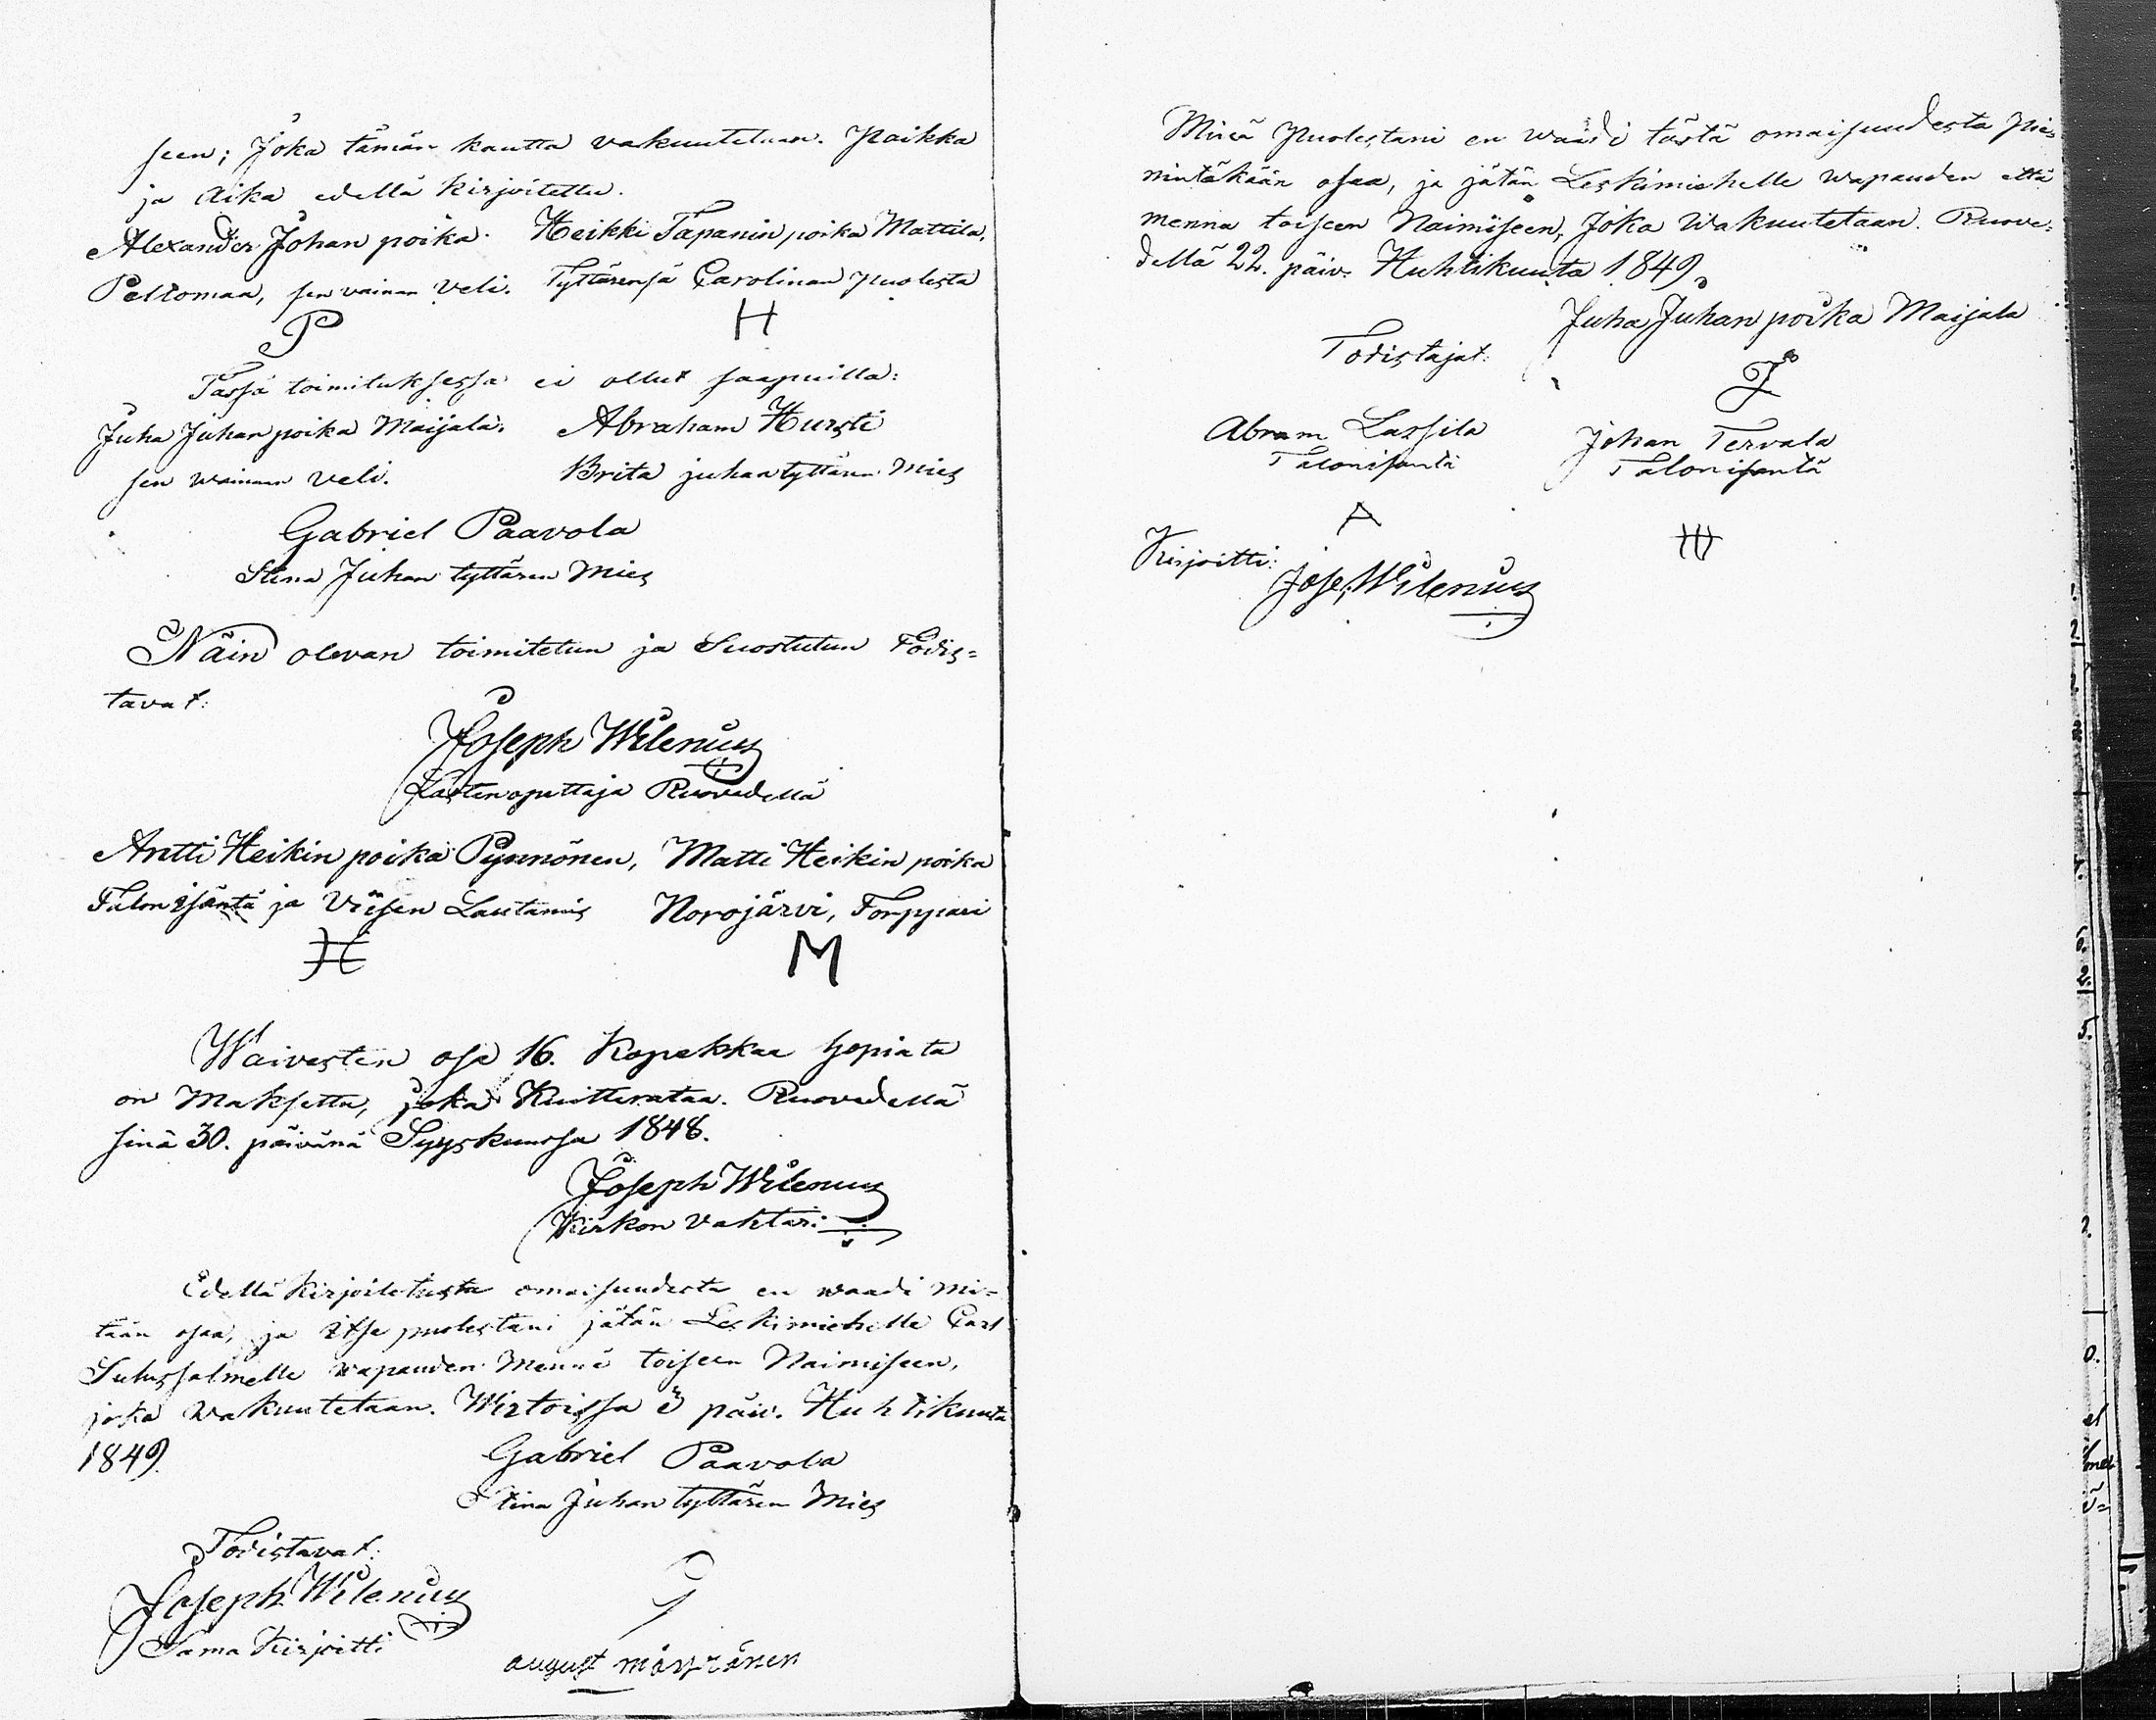 seen; Joka tämän kautta vakuutetaan. Paikka
ja Aika edellä kirjoitettu.
Alexander Johan poika. Heikki Tapanin poika Mattila,
Peltomaa, sen vainan Veli. Tyttärensä Carolinan puolesta
P H
Tässä toimituksessa ei ollut saapuilla:
Juha Juhan poika Maijala. Abraham Hursti
sen wainaan Veli. Brita juhantyttären Mies
Gabriel Paavola
Stina Juhan tyttären Mies
Näin olevan toimitetun ja Suostutun Todis=
tavat:
Joseph Wilenius
Lastenopettaja Ruovedellä
Antti Heikin poika Pynnönen, Matti Heikin poika
Talon isäntä ja Viisen Lautamies Norojärvi, Torppari
H M
Waivasten osa 16. Kopekkaa hopiata
on Maksettu, joka Kuitterataa. Ruovedellä
sinä 30. päivänä Syyskuussa 1848.
Joseph Wilenius
Kirkon Vahtari
Edellä kirjoitetusta omaisuudesta en waadi mi=
tään osaa, ja itse puolestani jätän Leskimiehelle Carl
Sulussalmelle wapauden Mennä toiseen Naimiseen,
joka wakuutetaan. Wirtoissa 3 päiv. Huhtikuuta
1849. Gabriel Paavola
Stina Juhan tyttären Mies
Todistavat:
Joseph Wilenius
Sama Kirjoitti
august
Minä Puolestani en waadi tästä omaisuudesta Pie=
nintäkään osaa, ja jätän Leskimiehelle wapauden että
menna toiseen Naimiseen, Joka Wakuutetaan. Ruove=
dellä 22. päiv. Huhtikuuta 1849.
Juha Juhan poika Maijala
Todistajat: J
Abram Lassila Johan Tervala
Talonisäntä Talonisäntä
A
Kirjoitti:
Jose; Wilenius